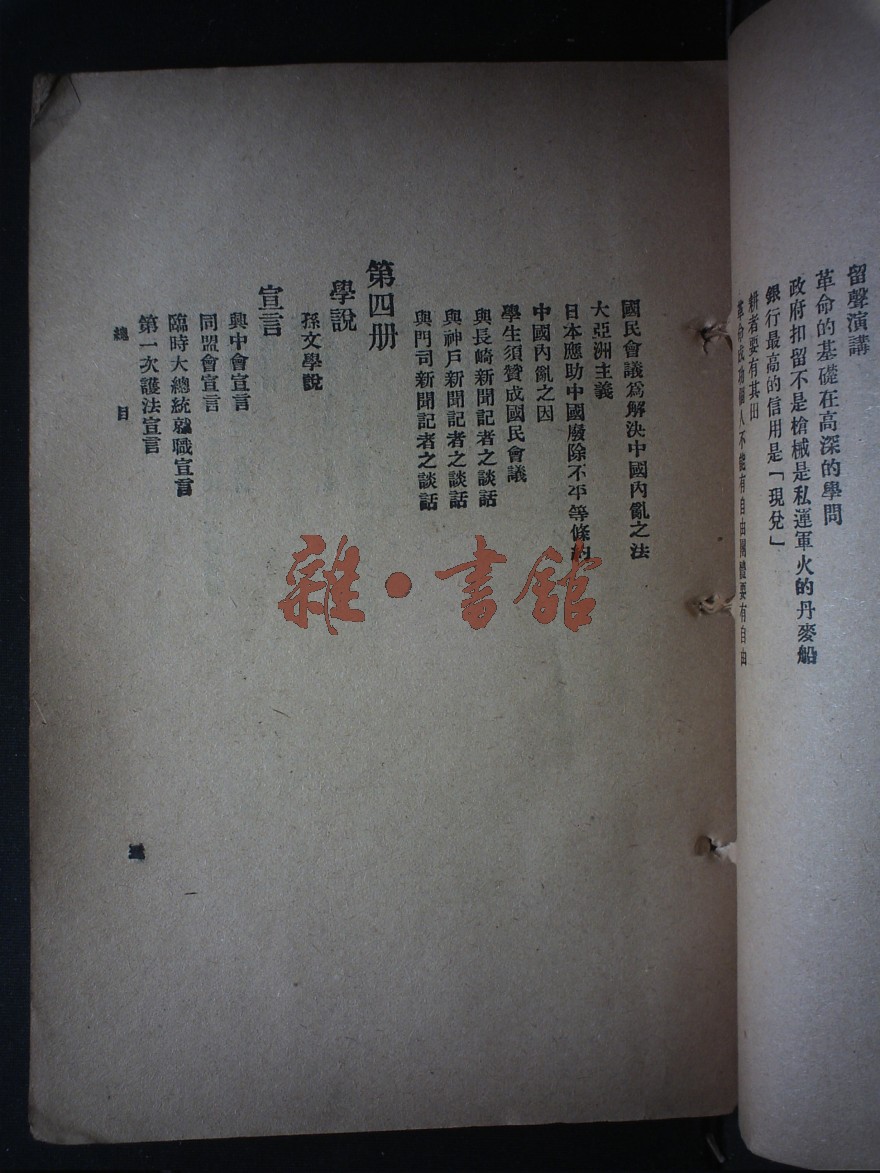 留聲演講
革命的基礎在高深的學問
政府扣留不是槍械是私運軍火的丹麥船
銀行最高的信用是「現兌」
耕者要有其田
革命成功個人不能有自由團體要有自由
國民會議爲解決中國內亂之法
大亞洲主義
日本應助中國廢除不平等條約
中國內亂之因
學生須贊成國民會議
與長崎新聞記者之談話
與神戶新聞記者之談話
與門司新聞記者之談話
第四册
學說
孫文學說
宣言
興中會宣言
同盟會宣言
臨時大總統就職宣言
第一次護法宣言
總目
雜·書館